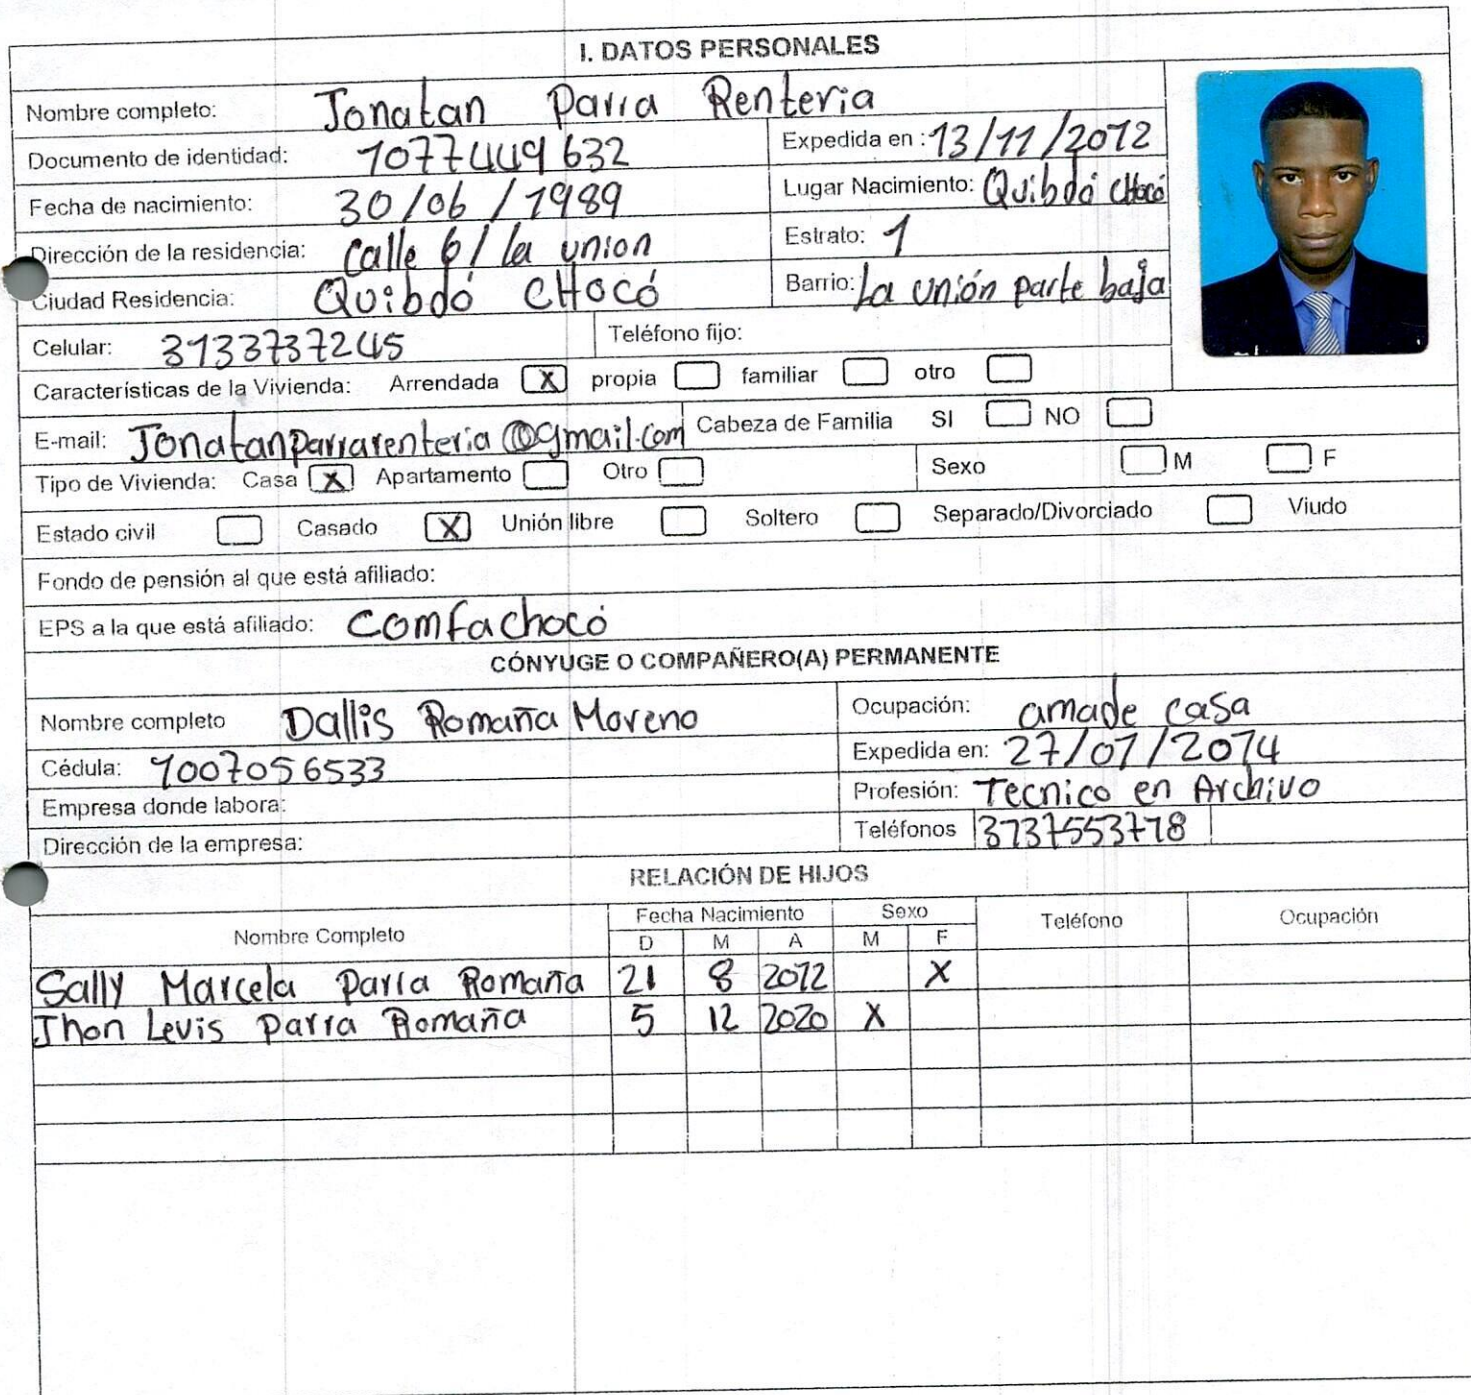 I. DATOS PERSONALES
Nombre completo: Jonatan Parra Renteria
Documento de identidad: 1077449632 Expedida en : 13/11/2012
Fecha de nacimiento: 30/06/1989 Lugar Nacimiento: Quibdó CHocó
Dirección de la residencia: calle 6/ la union Estrato: 1
Ciudad Residencia: Quibdó CHOCÓ Barrio: La unión parte baja
Celular: 3133737245 Teléfono fijo:
Características de la Vivienda: Arrendada X propia familiar otro
E-mail: Jonatanparrarenteria@gmail.com Cabeza de Familia SI NO
Tipo de Vivienda: Casa X Apartamento Otro Sexo M F
Estado civil Casado X Unión libre Soltero Separado/Divorciado Viudo
Fondo de pensión al que está afiliado:
EPS a la que está afiliado: comfachocó
CÓNYUGE O COMPAÑERO(A) PERMANENTE
Nombre completo Dallis Romaña Moreno Ocupación: amade casa
Cédula: 1007056533 Expedida en: 27/01/2014
Empresa donde labora: Profesión: Tecnico en Archivo
Dirección de la empresa: Teléfonos 3137553718
RELACIÓN DE HIJOS
Nombre Completo Fecha Nacimiento Sexo Teléfono Ocupación
D M A M F
Sally Marcela Parra Romaña 21 8 2012 X
Jhon Levis Parra Romaña 5 12 2020 X